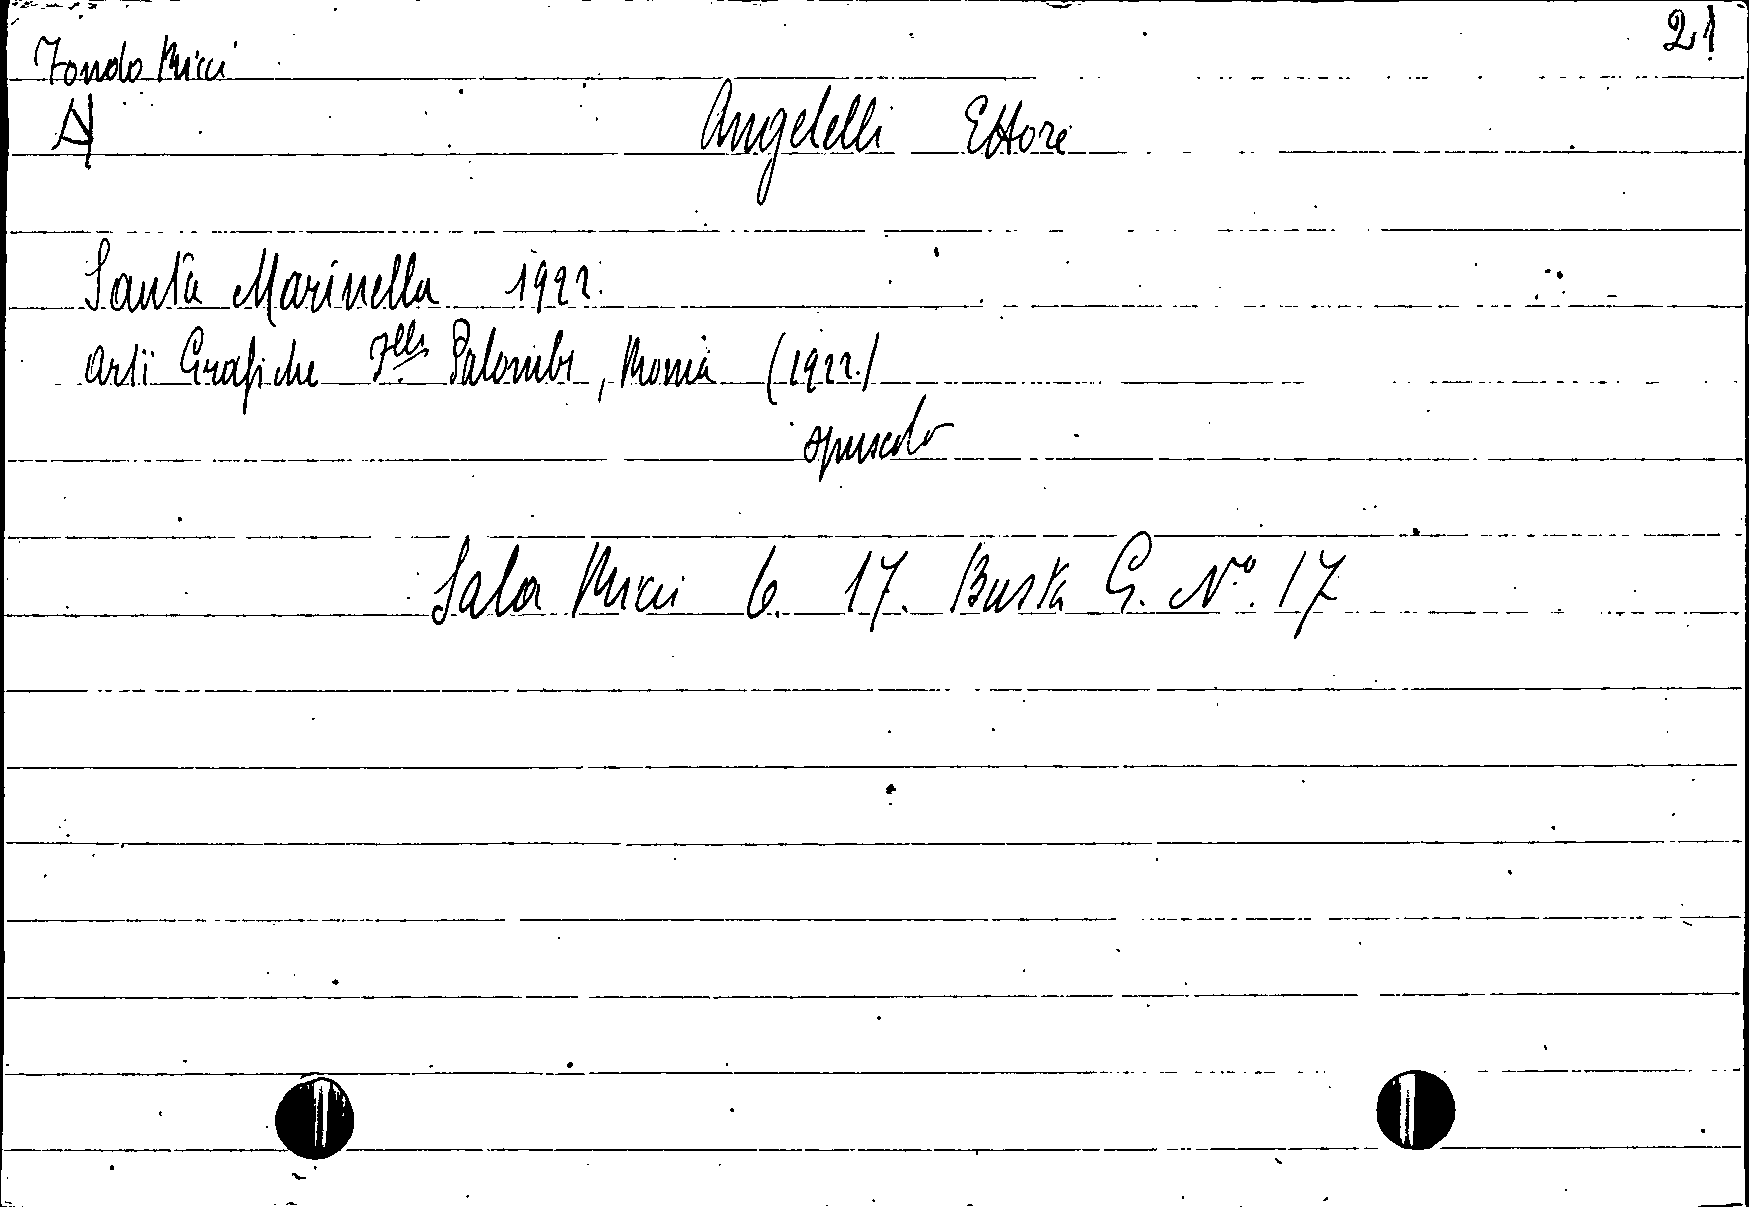 21
Fondo Ricci
A
Angelelli Ettore
Santa Marinella 1922.
Arti Grafiche F.lli Palombi, Roma (1922.)
opuscolo
Sala Ricci 6. 17. Busta G. N.° 17